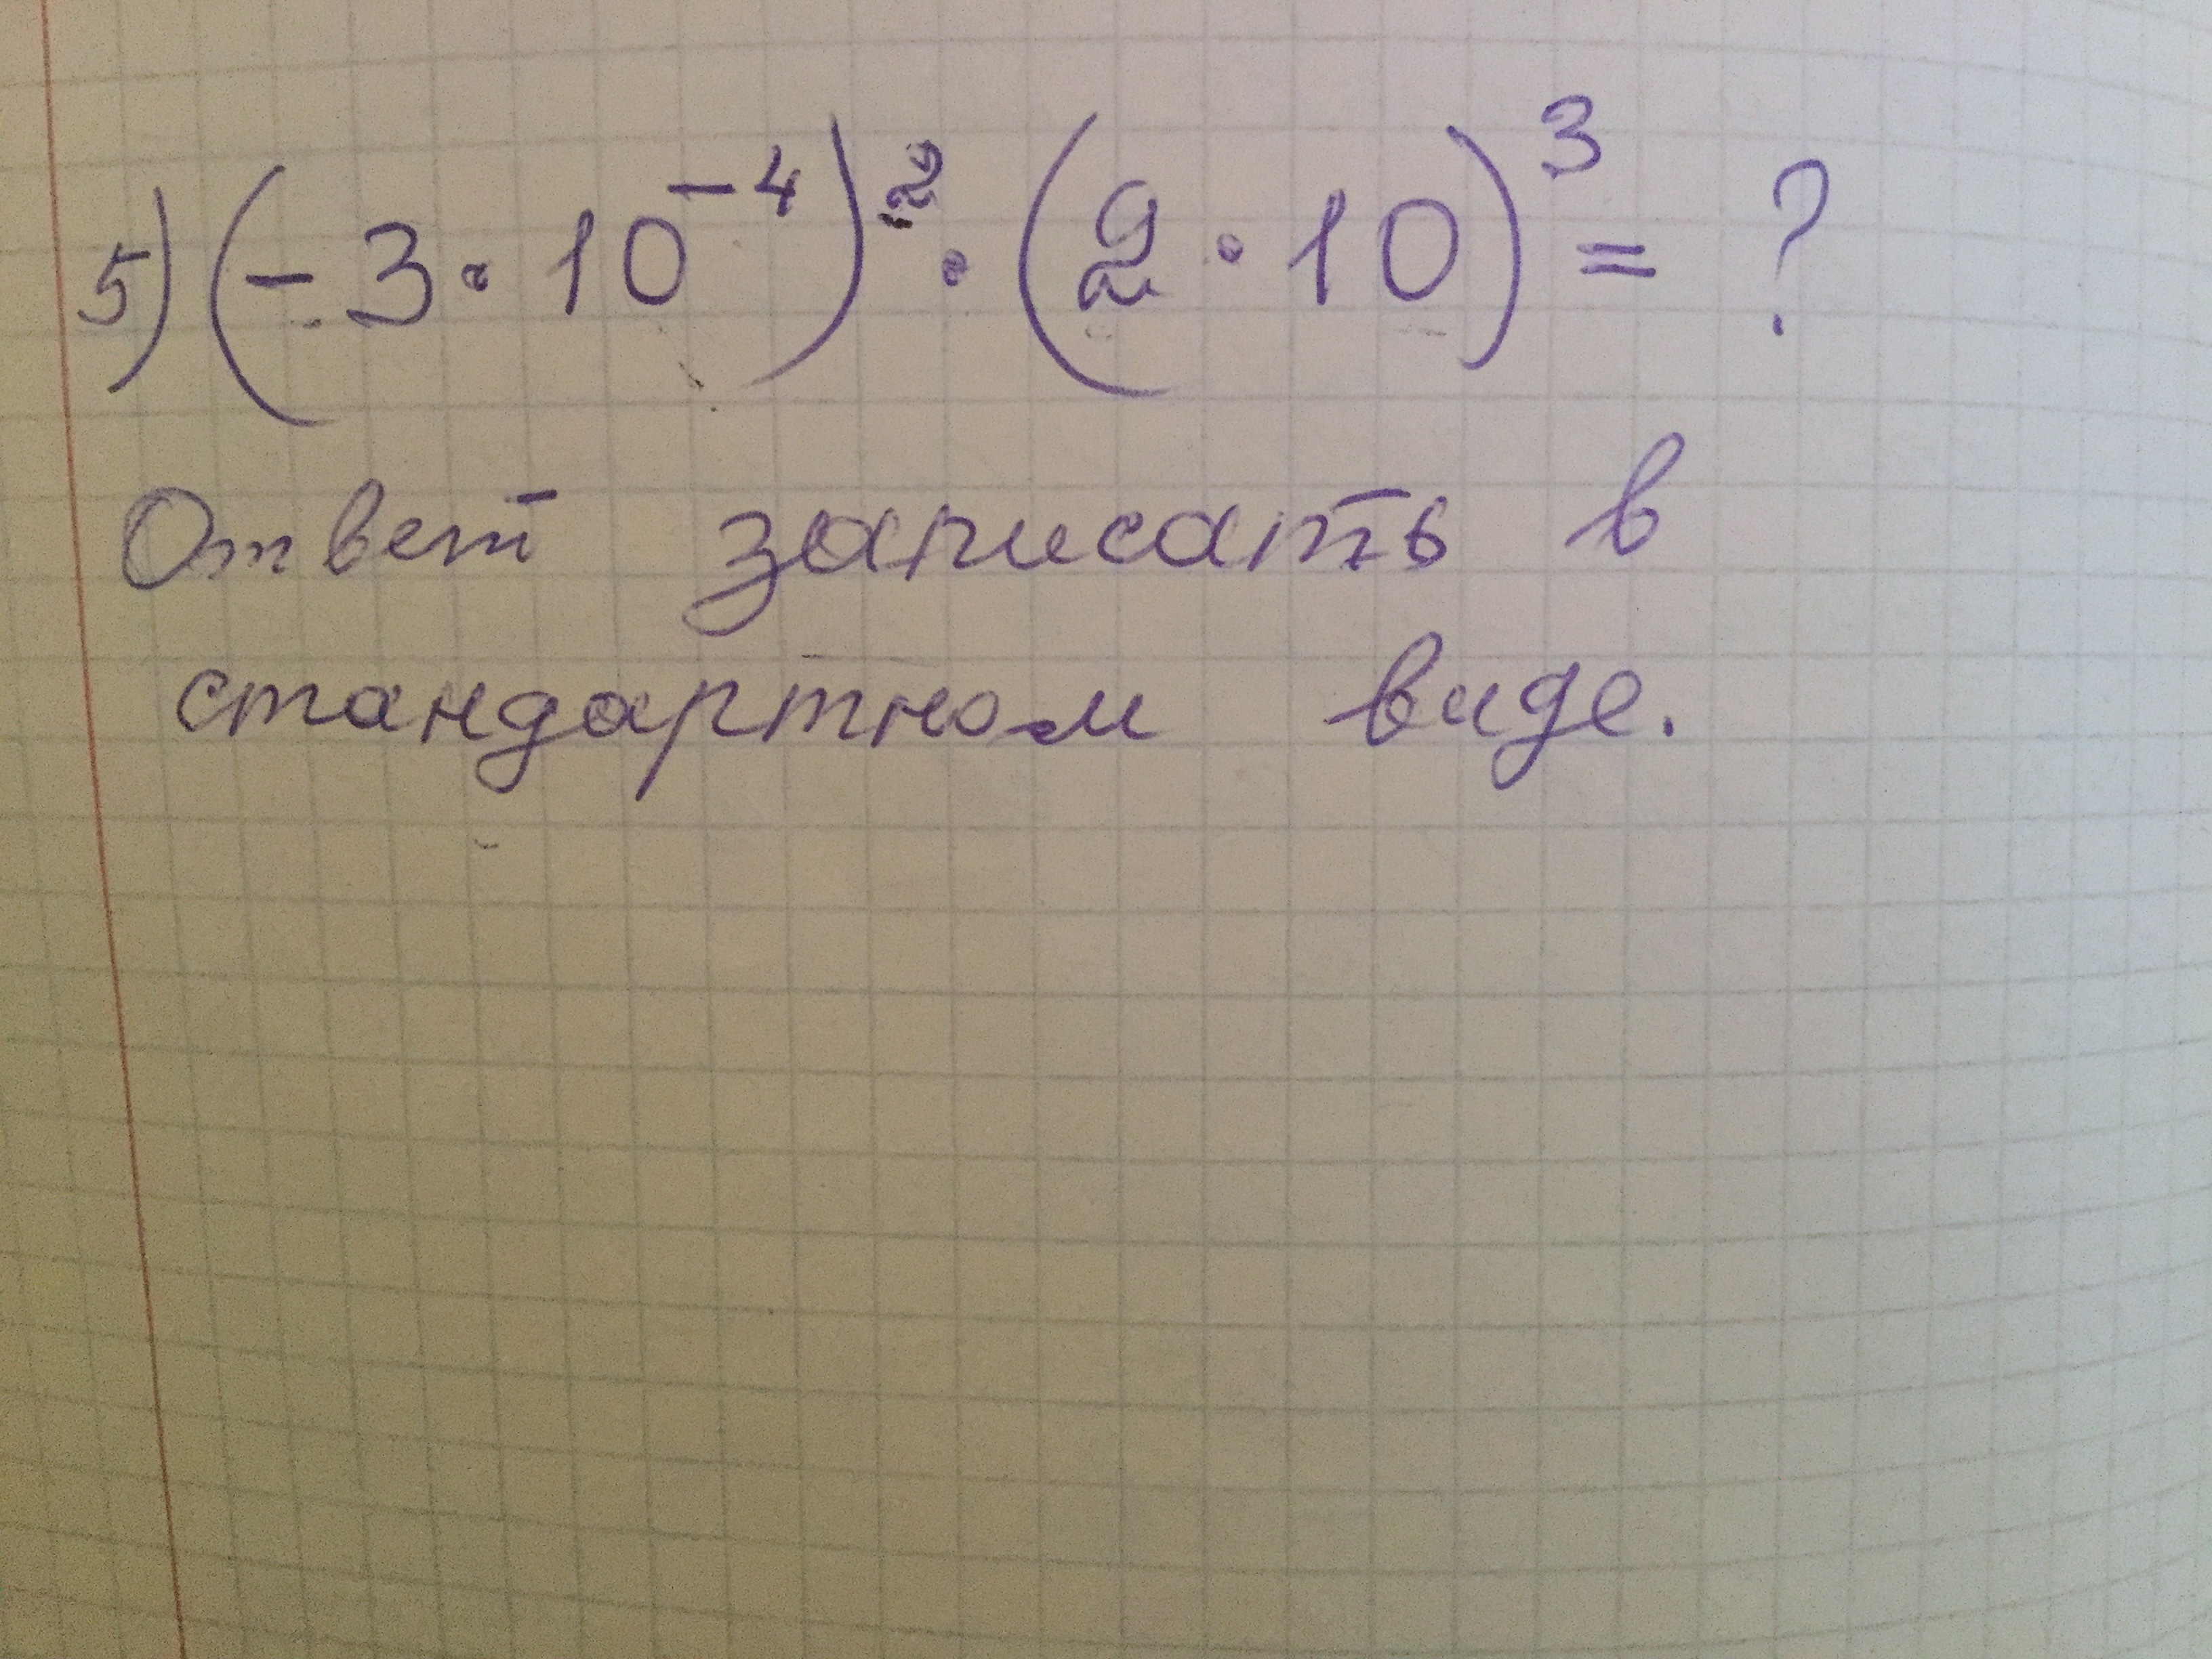 5) (-3 · 10⁻⁴)² · (2 · 10)³ = ?
Ответ записать в
стандартном виде.